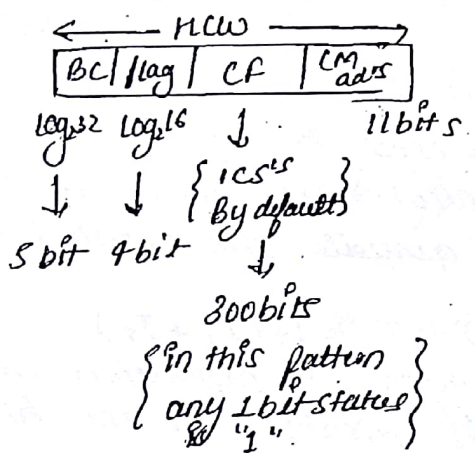 HCW
BC | flag | CF | CM ad's
log₂32 log₂16 ↓ 11bits
↓ ↓ { 1CS's
By default }
5 bit 4bit ↓
300bits
{ in this pattern
any 1 bit status
is "1". }